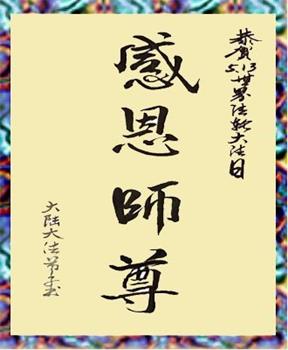 恭賀5.13世界法輪大法日
感恩師尊
大陸大法弟子